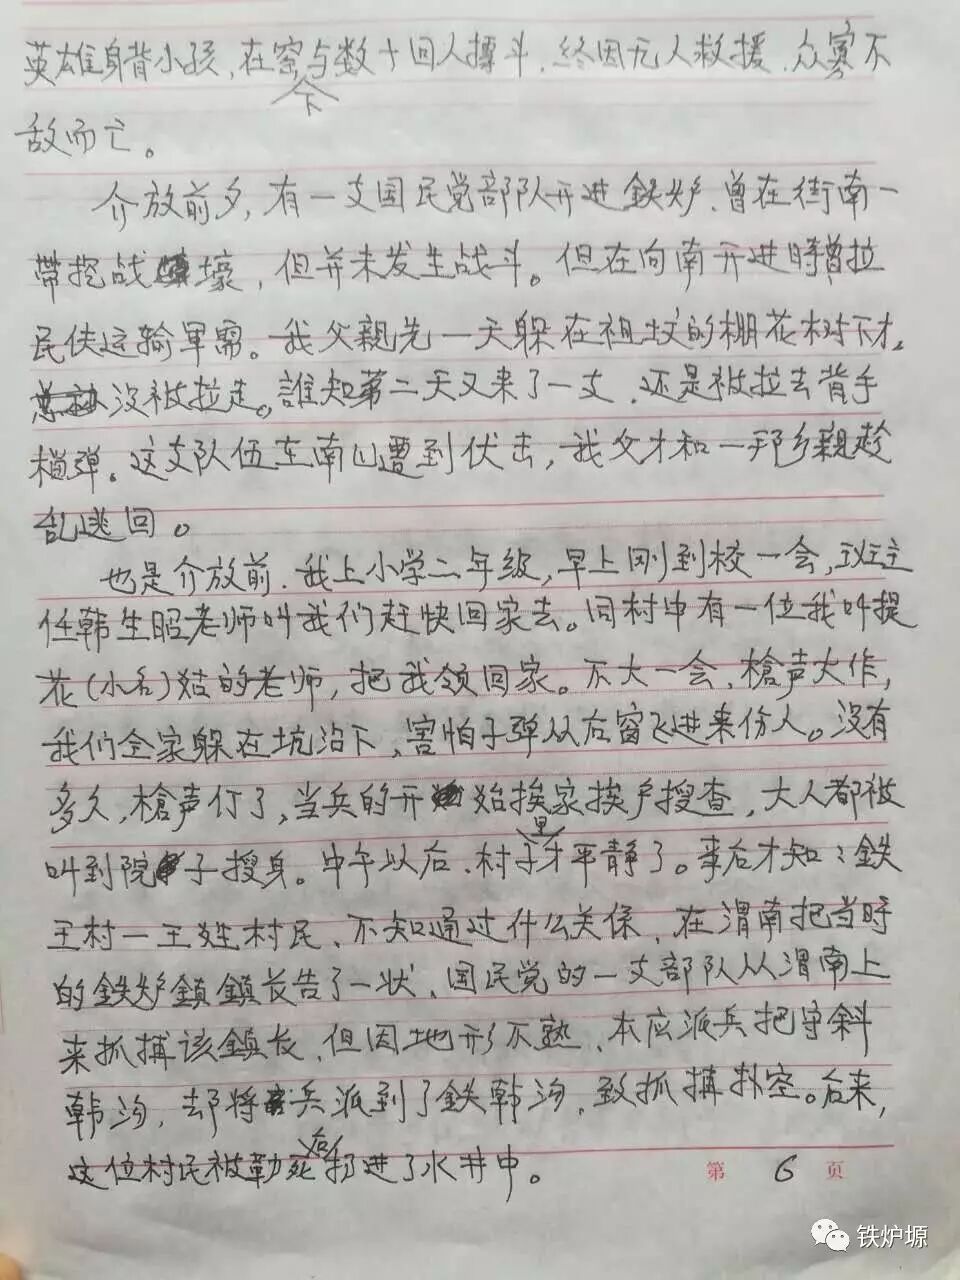 英雄身背小孩,在窑下与数十回人搏斗,终因无人救援,众寡不
敌而亡。
介放前夕,有一支国民党部队开进鉄炉,曾在街南一
带挖战壕,但并未发生战斗。但在向南开进時曾拉
民伕运输军需。我父親先一天躲在祖坟的棚花树下才,
没被拉走。誰知第二天又来了一支,还是被拉去背手
榴弹。这支队伍在南山遭到伏击,我父才和一邦乡親趁
乱逃回。
也是介放前,我上小学二年级,早上刚到校一会,班主
任韩生昭老师叫我们赶快回家去。同村中有一位我叫提
花(小名)姑的老师,把我领回家。不大一会,槍声大作,
我们全家躲在坑沿下,害怕子弹从后窗飞进来伤人。没有
多久,槍声仃了,当兵的开始挨家挨户搜查,大人都被
叫到院子搜身。中午以后,村子里才平静了。来后才知:鉄
王村一王姓村民,不知通过什么关係,在渭南把当時
的鉄炉鎮鎮長告了一状,国民党的一支部队从渭南上
来抓捕该鎮長,但因地形不熟,本应派兵把守斜
韩沟,却将兵派到了鉄韩沟,致抓捕扑空。后来,
这位村民被勒死后扔进了水井中。
第 6 页
铁炉塬